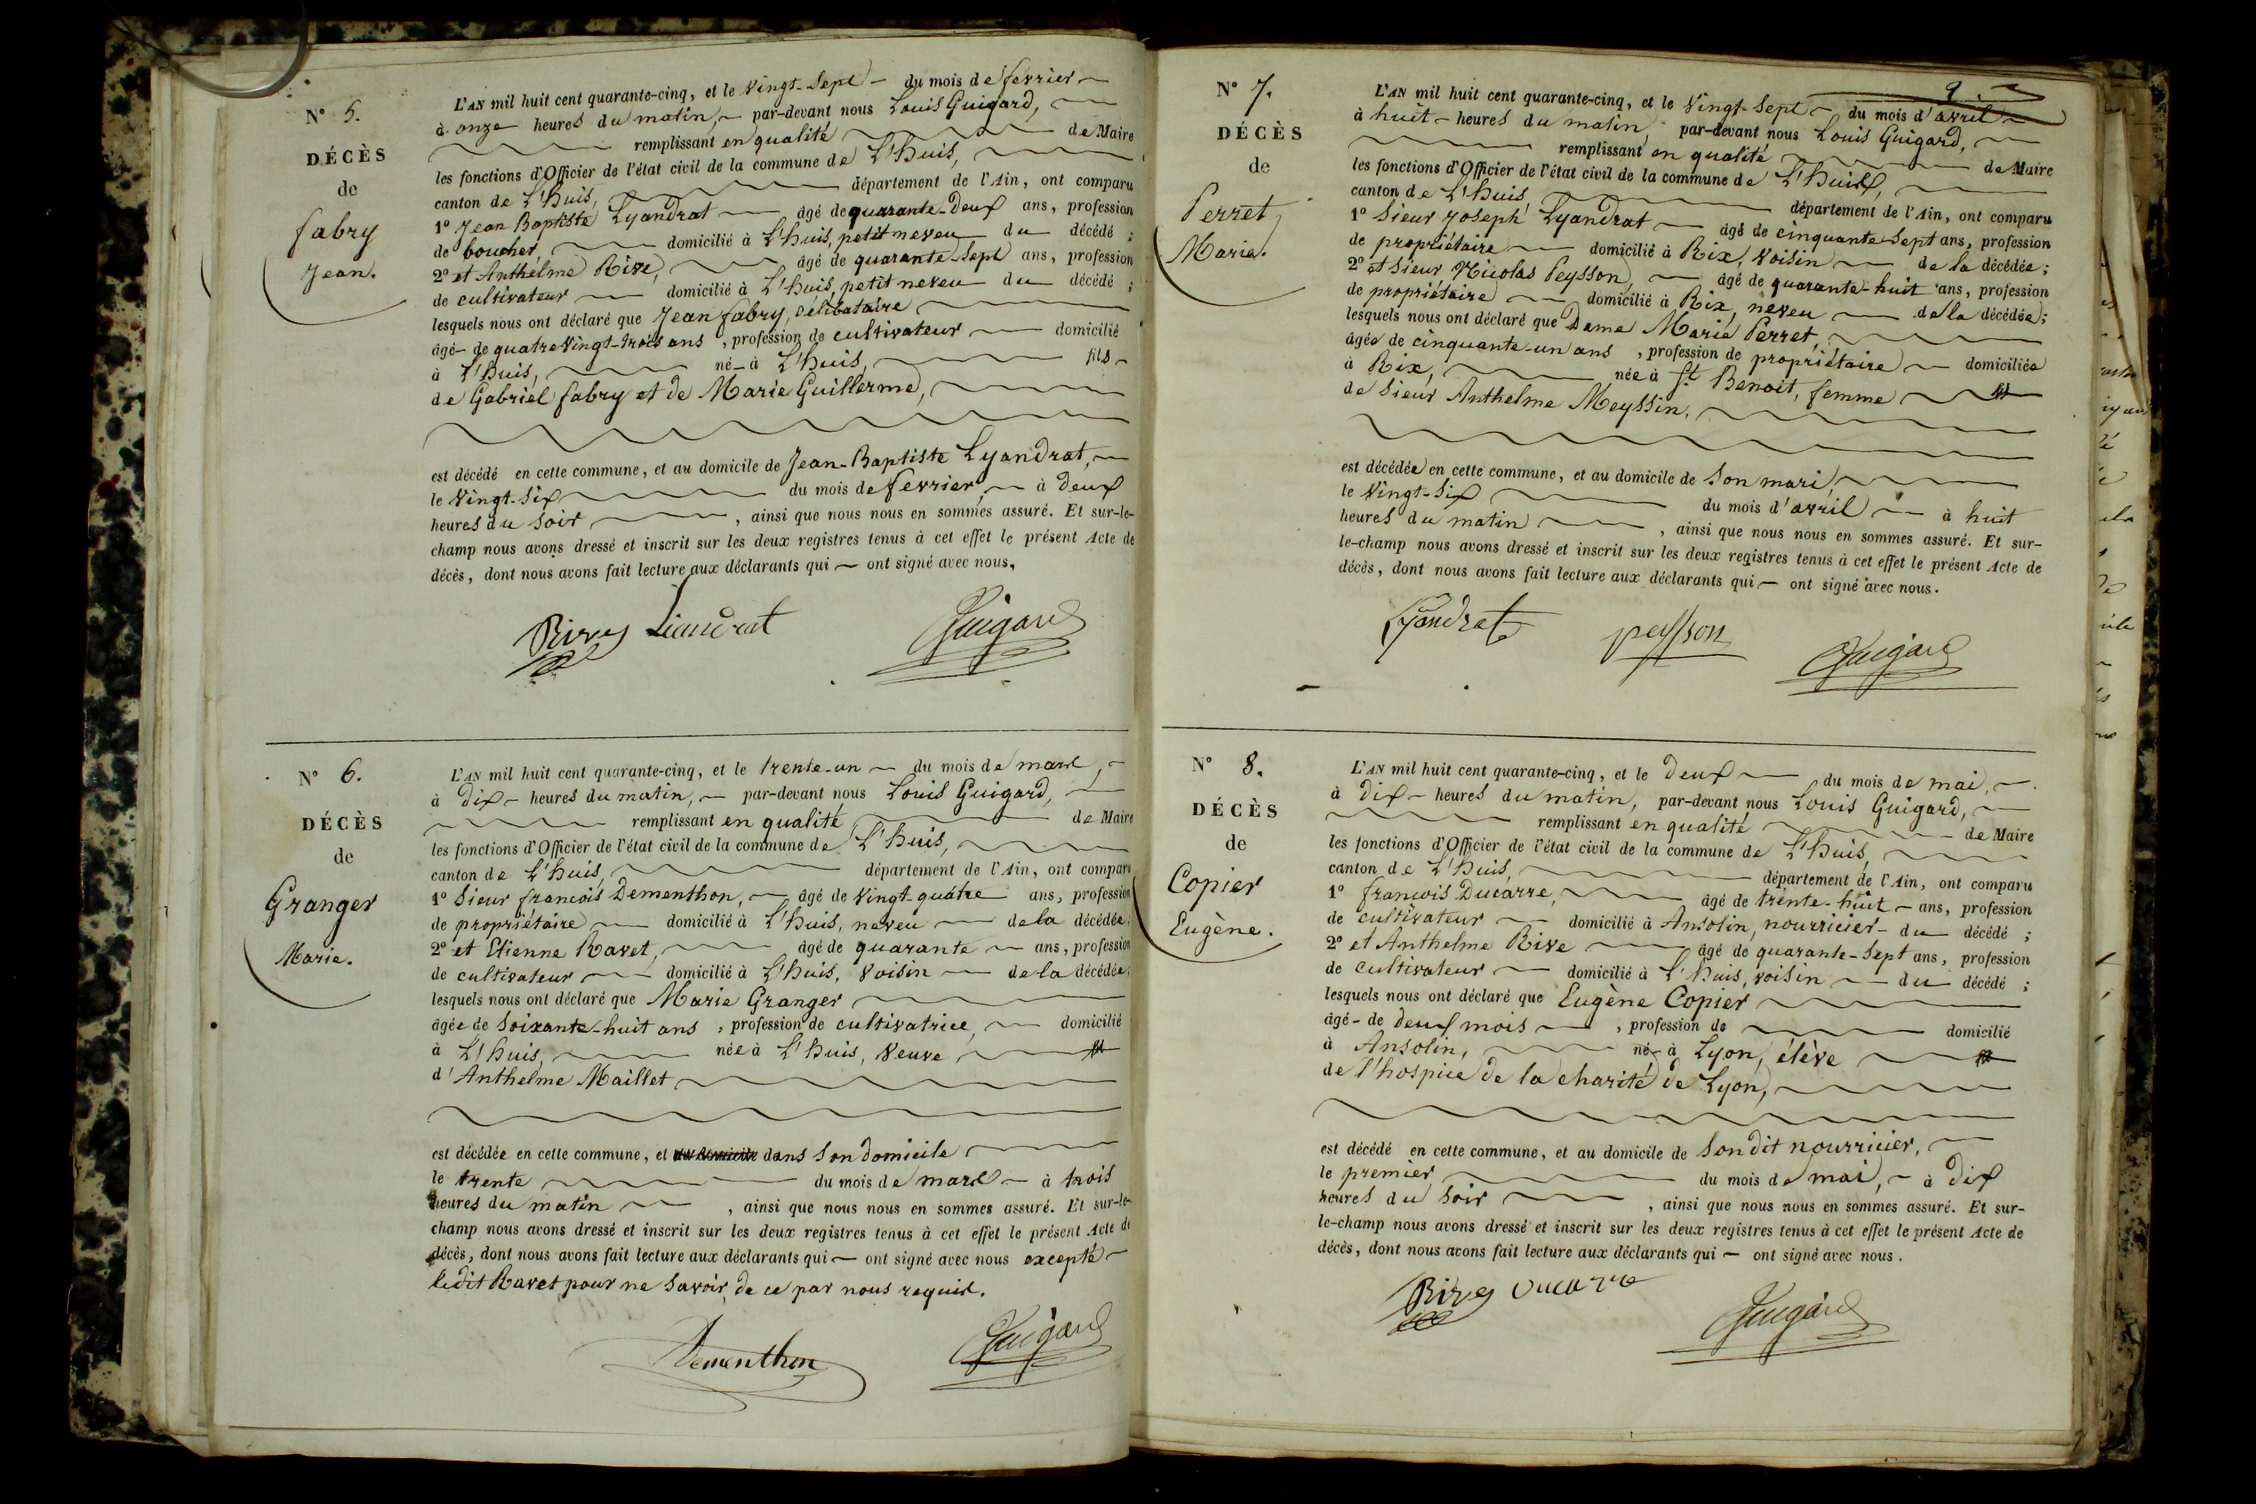 N° 5.
DÉCÈS
de
fabry
Jean.
L'AN mil huit cent quarante-cinq, et le Vingt-Sept du mois de fevrier
à onze heures du matin, par-devant nous Louis Guigard,
remplissant en qualité de Maire
les fonctions d'Officier de l'état civil de la commune de L'huis,
canton de L'huis, département de l'Ain, ont comparu
1° Jean Baptiste Lyandrat âgé de quarante-Deux ans, profession
de boucher, domicilié à L'huis, petit neveu du décédé ;
2° et Anthelme Rive, âgé de quarante-Sept ans, profession
de cultivateur domicilié à L'huis, petit neveu du décédé ;
lesquels nous ont déclaré que Jean fabry, célibataire
âgé de quatre Vingt-trois ans , profession de cultivateur domicilié
à L'huis, né à L'huis, fils
de Gabriel fabry et de Marie Guillerme,
est décédé en cette commune, et au domicile de Jean-Baptiste Lyandrat,
le Vingt-Six du mois de fevrier, à Deux
heures du Soir , ainsi que nous nous en sommes assuré. Et sur-le-
champ nous avons dressé et inscrit sur les deux registres tenus à cet effet le présent Acte de
décès, dont nous avons fait lecture aux déclarants qui ont signé avec nous.
Rive Liandrat Guigard
N° 6.
DÉCÈS
de
Granger
Marie.
L'AN mil huit cent quarante-cinq, et le trente-un du mois de mars,
à Dix heures du matin, par-devant nous Louis Guigard,
remplissant en qualité de Maire
les fonctions d'Officier de l'état civil de la commune de L'huis,
canton de L'huis, département de l'Ain, ont comparu
1° Sieur francois Dementhon, âgé de Vingt-quatre ans, profession
de propriétaire domicilié à L'huis, neveu de la décédée;
2° et Etienne Ravet, âgé de quarante ans, profession
de cultivateur domicilié à L'huis, Voisin de la décédée;
lesquels nous ont déclaré que Marie Granger
âgée de Soixante-huit ans , profession de cultivatrice, domicilié
à L'huis, née à L'huis, Veuve
d'Anthelme Maillet
est décédée en cette commune, et au domicile dans Son Domicile
le trente du mois de mars à trois
heures du matin , ainsi que nous nous en sommes assuré. Et sur-le-
champ nous avons dressé et inscrit sur les deux registres tenus à cet effet le présent Acte de
décès, dont nous avons fait lecture aux déclarants qui ont signé avec nous excepté
ledit Ravet pour ne Savoir, de ce par nous requis.
Dementhon Guigard
9.
N° 7.
DÉCÈS
de
Perret
Marie.
L'AN mil huit cent quarante-cinq, et le Vingt-Sept du mois d'avril
à huit heures du matin, par-devant nous Louis Guigard,
remplissant en qualité de Maire
les fonctions d'Officier de l'état civil de la commune de L'huis,
canton de L'huis département de l'Ain, ont comparu
1° Sieur Joseph Lyandrat âgé de cinquante-Sept ans, profession
de propriétaire domicilié à Rix, Voisin de la décédée;
2° et Sieur Nicolas Peysson, âgé de quarante-huit ans, profession
de propriétaire domicilié à Rix, neveu de la décédée;
lesquels nous ont déclaré que Dame Marie Perret,
âgée de cinquante-un ans , profession de propriétaire domiciliée
à Rix, née à St Benoit, femme
de Sieur Anthelme Meyssin,
est décédée en cette commune, et au domicile de Son mari,
le Vingt-Six du mois d'avril à huit
heures du matin , ainsi que nous nous en sommes assuré. Et sur-
le-champ nous avons dressé et inscrit sur les deux registres tenus à cet effet le présent Acte de
décès, dont nous avons fait lecture aux déclarants qui ont signé avec nous.
Lyandrat peysson Guigard
N° 8.
DÉCÈS
de
Copier
Eugène.
L'AN mil huit cent quarante-cinq, et le Deux du mois de mai,
à Dix heures du matin, par-devant nous Louis Guigard,
remplissant en qualité de Maire
les fonctions d'Officier de l'état civil de la commune de L'huis,
canton de L'huis, département de l'Ain, ont comparu
1° francois Ducarre, âgé de trente-huit ans, profession
de cultivateur domicilié à Ansolin, nourricier du décédé ;
2° et Anthelme Rive âgé de quarante-Sept ans, profession
de cultivateur domicilié à L'huis, voisin du décédé ;
lesquels nous ont déclaré que Eugène Copier
âgé de deux mois , profession de domicilié
à Ansolin, né à Lyon, élève
de l'hospice de la charité de Lyon,
est décédé en cette commune, et au domicile de Son dit nourricier,
le premier du mois de mai, à Dix
heures du Soir , ainsi que nous nous en sommes assuré. Et sur-
le-champ nous avons dressé et inscrit sur les deux registres tenus à cet effet le présent Acte de
décès, dont nous avons fait lecture aux déclarants qui ont signé avec nous.
Rive Ducarre Guigard